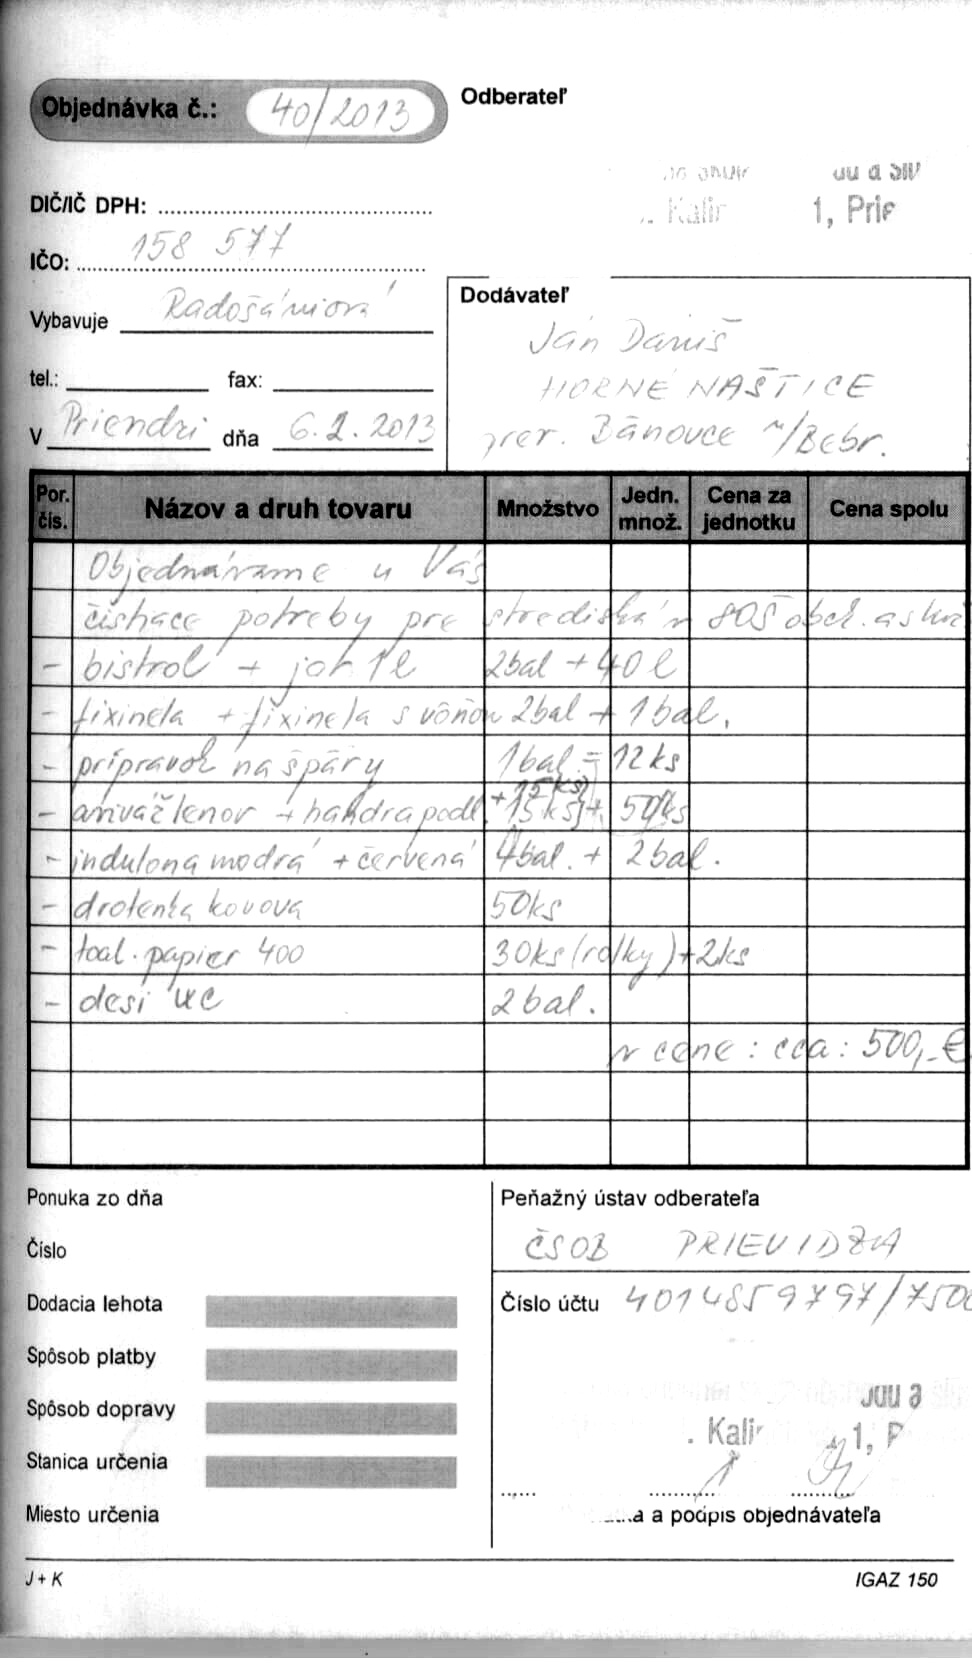 Objednávka č.: 40/2013
Odberateľ
DIČ/IČ DPH:
Kalin 1, Prie
IČO: 158 577
Vybavuje Radošániová
Dodávateľ
Ján Daniš
tel.: fax:
HORNÉ NAŠTICE
V Prievidzi dňa 6.2.2013
prev. Bánovce n/Bebr.
Por. čís. Názov a druh tovaru Množstvo Jedn. množ. Cena za jednotku Cena spolu
Objednávame u Vás
čistiace potreby pre strediská SOŠ obch. a
- bistrol + jar 1l 2bal + 40l
- fixinela + fixinela s vôňou 2bal + 1bal.
- prípravok na špáry 1bal = 12ks
- + handra podl. +15ks + 50ks
- indulona modrá + červená 4bal. + 2bal.
- drotenka kovova 50ks
- toal. papier 400 30ks (rolky) + 2ks
- desi WC 2bal.
v cene : cca : 500,-€
Ponuka zo dňa
Peňažný ústav odberateľa
ČSOB PRIEVIDZA
Číslo
Dodacia lehota
Číslo účtu 4014859797/7500
Spôsob platby
Spôsob dopravy
Stanica určenia
Miesto určenia
a podpis objednávateľa
J + K
IGAZ 150